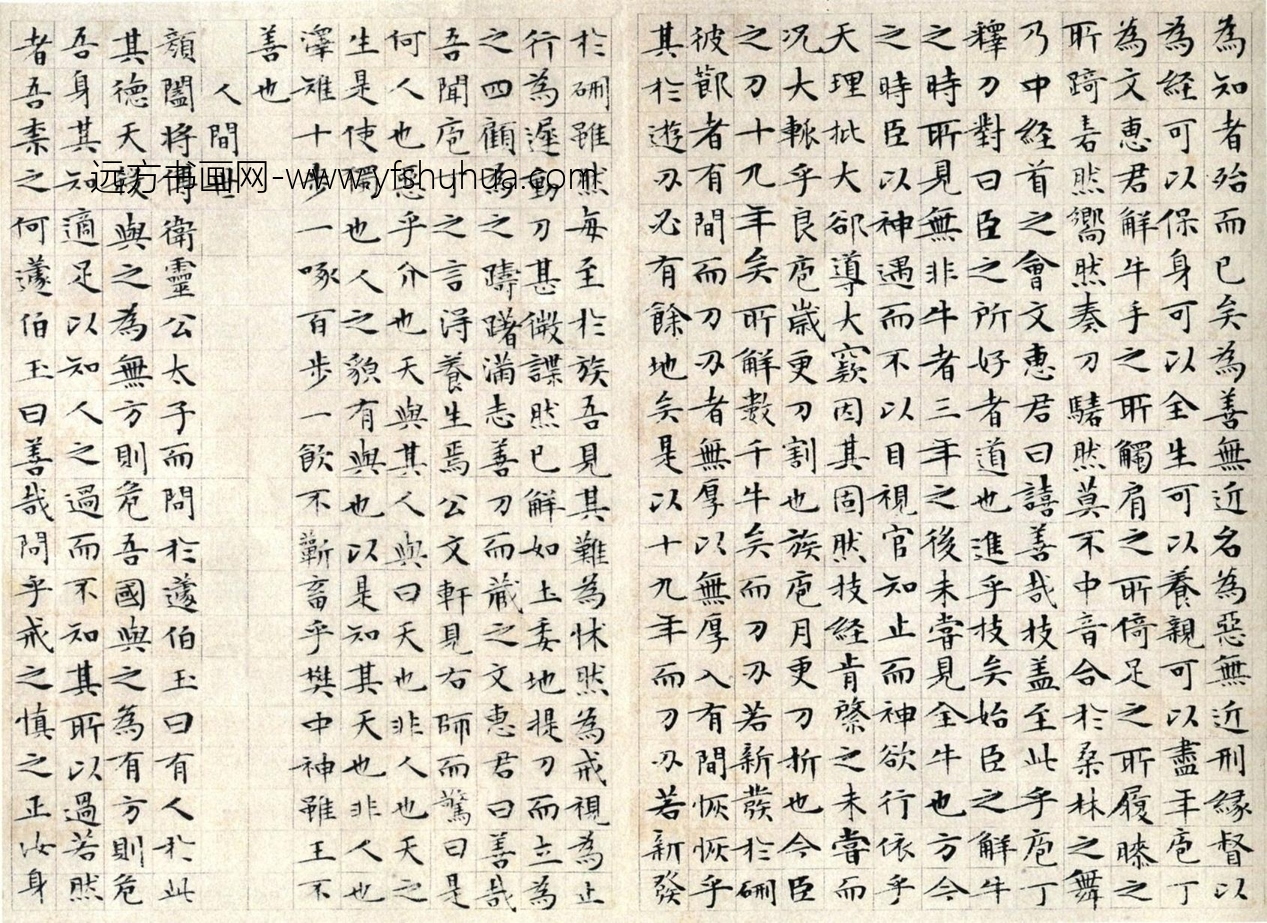 為知者殆而已矣為善無近名為惡無近刑緣督以
為經可以保身可以全生可以養親可以盡年庖丁
為文惠君解牛手之所觸肩之所倚足之所履膝之
所踦砉然嚮然奏刀騞然莫不中音合於桑林之舞
乃中經首之會文惠君曰譆善哉技蓋至此乎庖丁
釋刀對曰臣之所好者道也進乎技矣始臣之解牛
之時所見無非牛者三年之後未嘗見全牛也方今
之時臣以神遇而不以目視官知止而神欲行依乎
天理批大郤導大窾因其固然技經肯綮之未嘗而
况大軱乎良庖歲更刀割也族庖月更刀折也今臣
之刀十九年矣所解數千牛矣而刀刃若新發於硎
彼節者有間而刀刃者無厚以無厚入有間恢恢乎
其於遊刃必有餘地矣是以十九年而刀刃若新發
於硎雖然每至於族吾見其難為怵然為戒視為止
行為遲動刀甚微謋然已解如土委地提刀而立為
之四顧為之躊躇滿志善刀而藏之文惠君曰善哉
吾聞庖丁之言淂養生焉公文軒見右師而驚曰是
何人也惡乎介也天與其人與曰天也非人也天之
生是使獨也人之貌有與也以是知其天也非人也
澤雉十步一啄百步一飲不蘄畜乎樊中神雖王不
善也
人間世
顏闔將傅衛靈公太子而問於蘧伯玉曰有人於此
其德天殺與之為無方則危吾國與之為有方則危
吾身其知適足以知人之過而不知其所以過若然
者吾柰之何蘧伯玉曰善哉問乎戒之慎之正汝身
远方书画网-www.yfshuhua.com